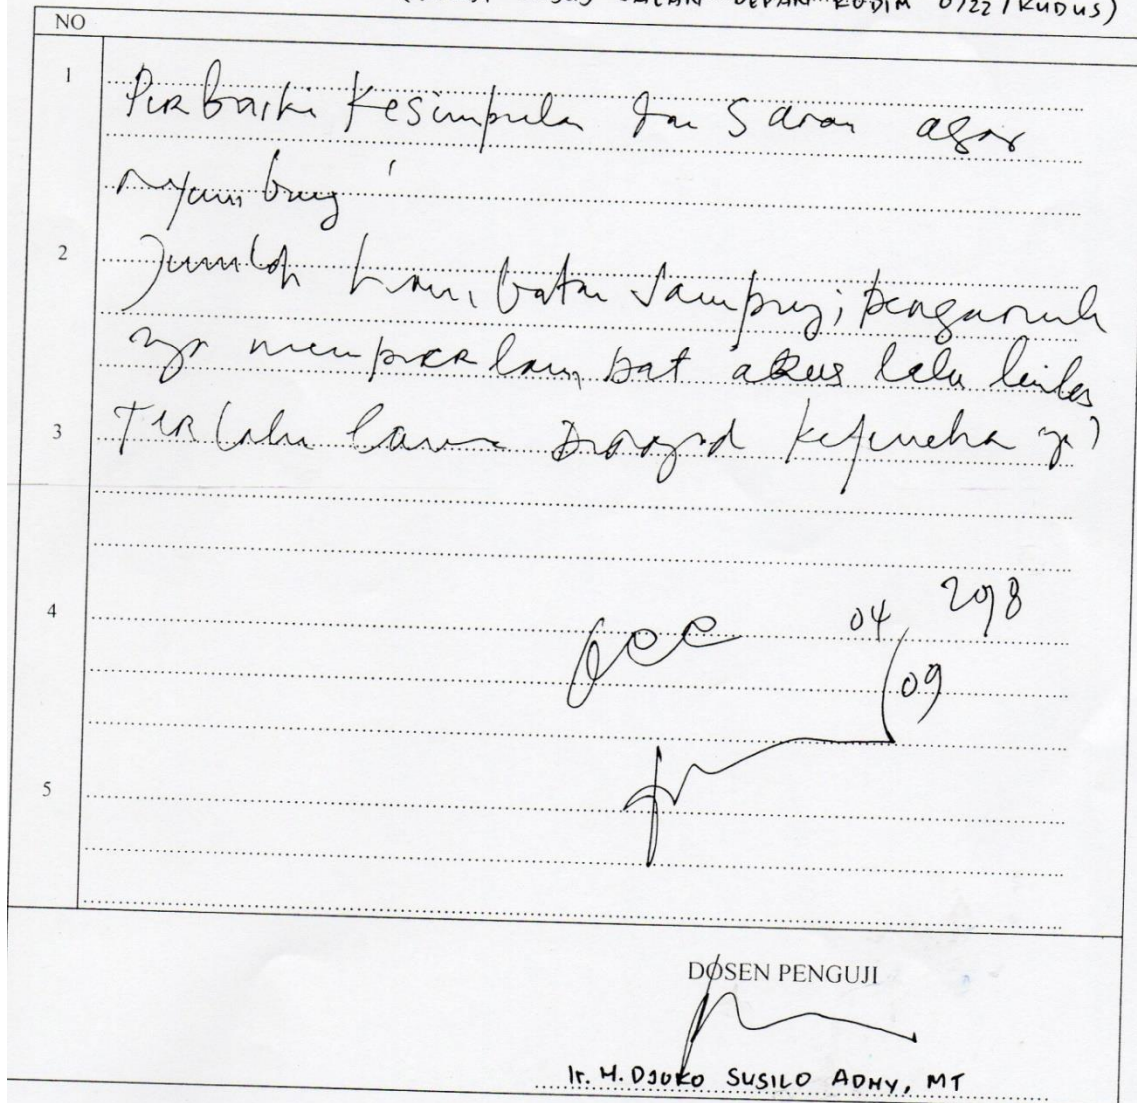 JALAN DEPAN KODIM 0722 / KUDUS)
NO
1
Perbaiki Kesimpulan dan Saran agar
nyambung
2
Jumlah hambatan samping; pengaruh
nya memperlambat arus lalu lintas
3
Terlalu lama
4
acc 04/09 2018
5
DOSEN PENGUJI
Ir. H. DJOKO SUSILO ADHY, MT